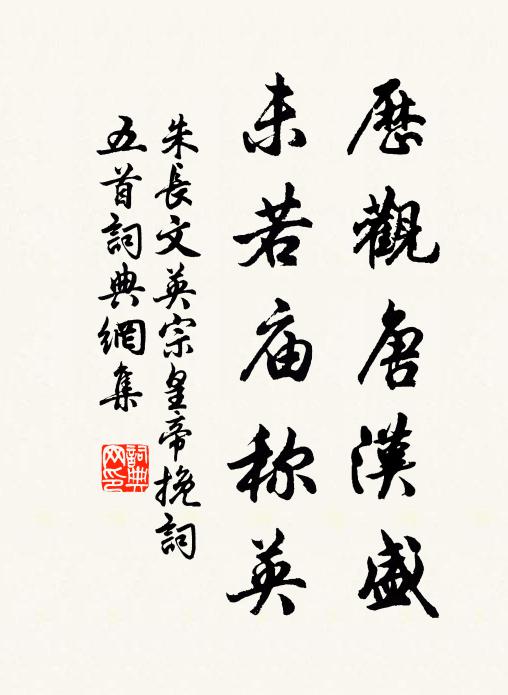 歷觀唐漢盛
未若庙称英
朱長文英宗皇帝挽詞
五首詞典網集
詞典
网印